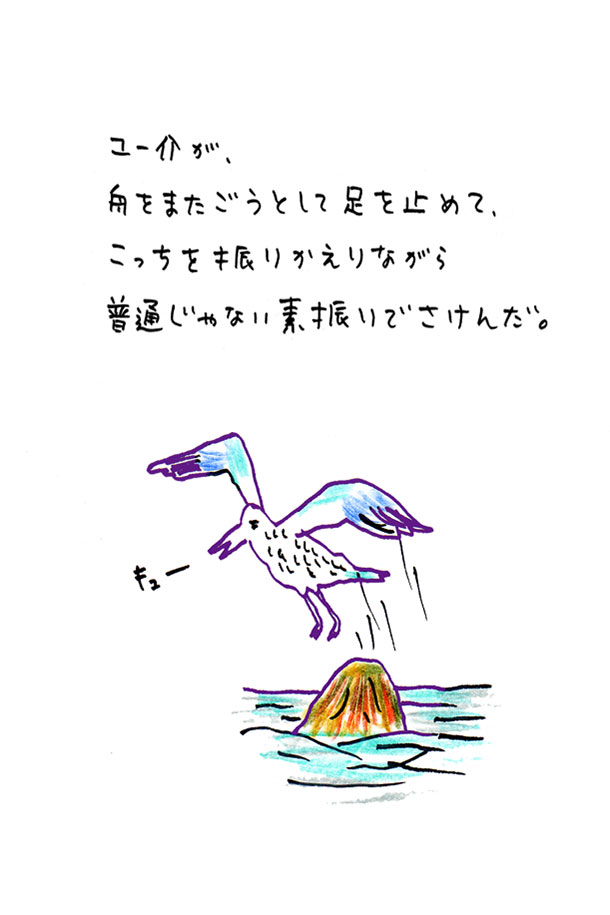 ユー介が、
舟をまたごうとして足を止めて、
こっちを振りかえりながら
普通じゃない素振りでさけんだ。
キュー